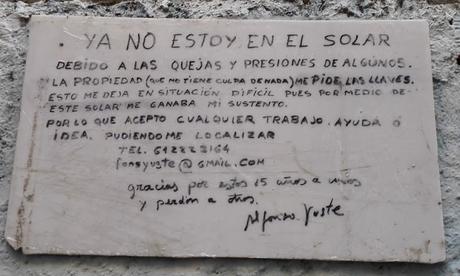 . YA NO ESTOY EN EL SOLAR
DEBIDO A LAS QUEJAS Y PRESIONES DE ALGUNOS.
LA PROPIEDAD (QUE NO TIENE CULPA DE NADA) ME PIDE LAS LLAVES.
ESTO ME DEJA EN SITUACIÓN DIFÍCIL PUES POR MEDIO DE
ESTE SOLAR ME GANABA MI SUSTENTO.
POR LO QUE ACEPTO CUALQUIER TRABAJO. AYUDA O
IDEA. PUDIENDOME LOCALIZAR
TEL. 612223164
fonsyuste@GMAIL.COM
gracias por estos 15 años a unos
y perdón a otros.
Alfonso Yuste